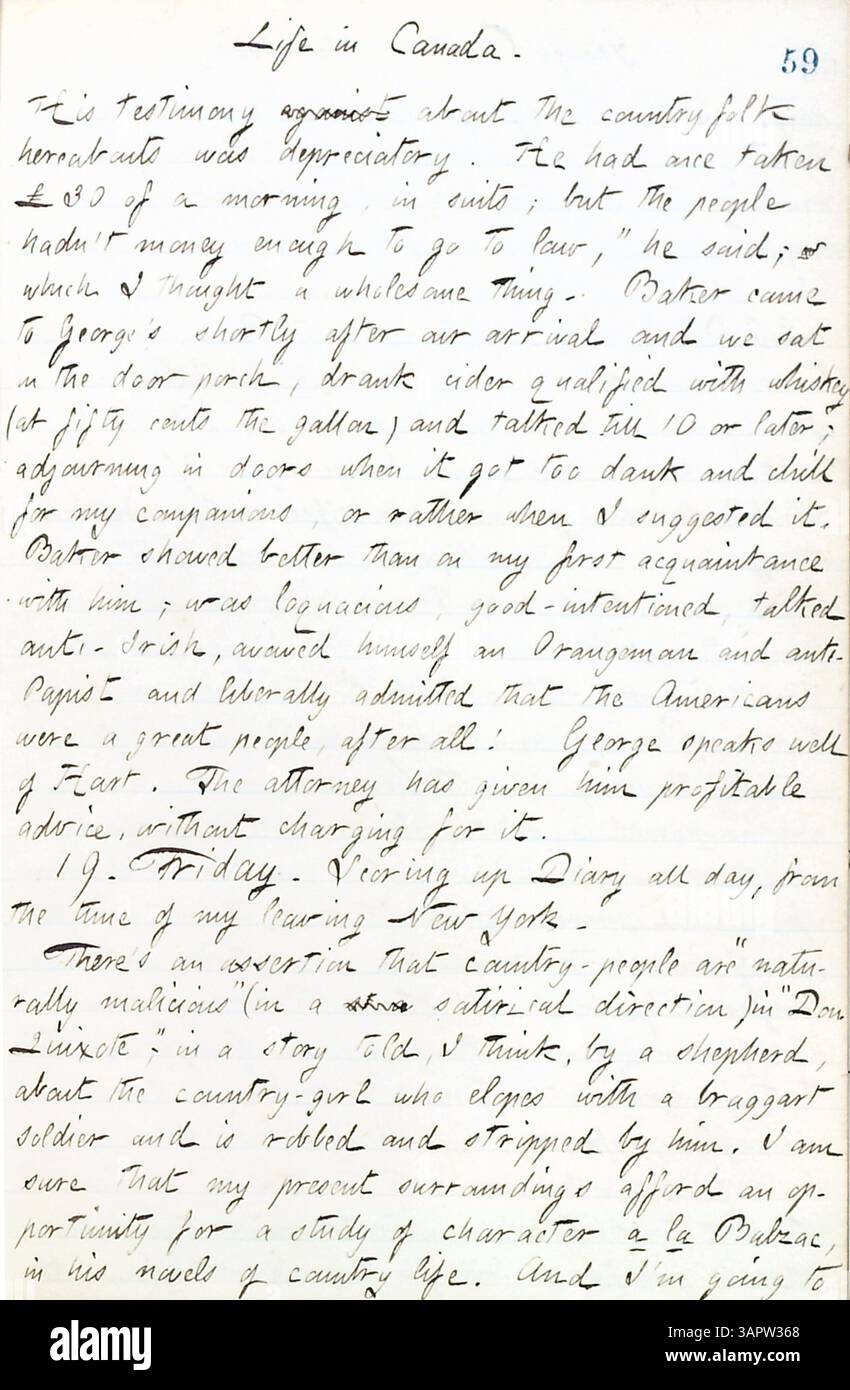 Life in Canada.
59
His testimony against about the country folk
hereabouts was depreciatory. He had once taken
£30 of a morning, in suits; but the people
hadn't money enough to go to law," he said;
which I thought a wholesome thing. Baker came
to George's shortly after our arrival and we sat
in the door porch, drank cider qualified with whiskey
(at fifty cents the gallon) and talked till 10 or later;
adjourning in doors when it got too dank and chill
for my companions, or rather when I suggested it.
Baker showed better than on my first acquaintance
with him; was loquacious, good-intentioned, talked
anti-Irish, avowed himself an Orangeman and anti-
Papist and liberally admitted that the Americans
were a great people, after all! George speaks well
of Hart. The attorney has given him profitable
advice, without charging for it.
19. Friday. Scoring up Diary all day, from
the time of my leaving New York.
There's an assertion that country-people are "natu-
rally malicious" (in a satirical direction) in "Don
Quixote"; in a story told, I think, by a shepherd,
about the country-girl who elopes with a braggart
soldier and is robbed and stripped by him. I am
sure that my present surroundings afford an op-
portunity for a study of character a la Balzac,
in his novels of country life. And I'm going to
alamy
Image ID: 3APW368
www.alamy.com